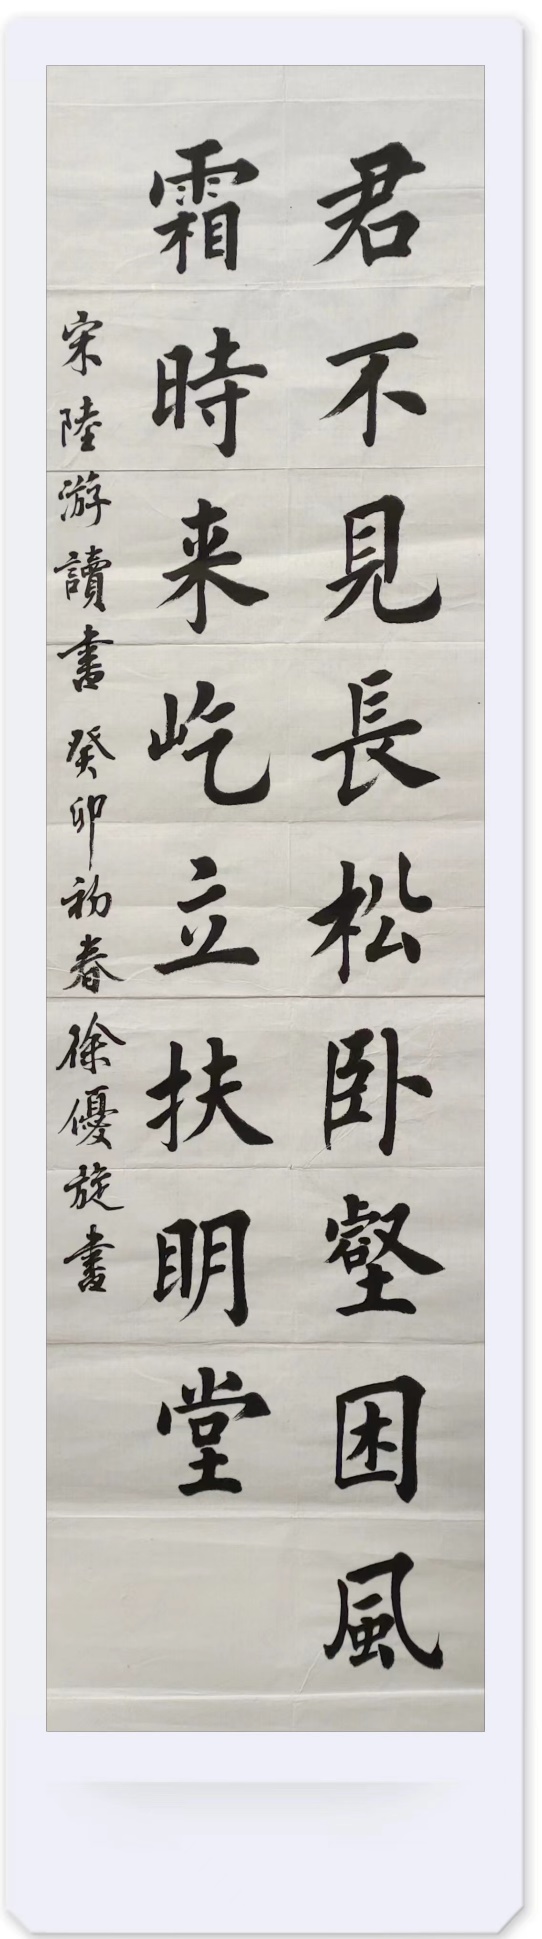 君不見長松卧壑困風
霜時来屹立扶明堂
宋陸游讀書癸卯初春徐優旋書